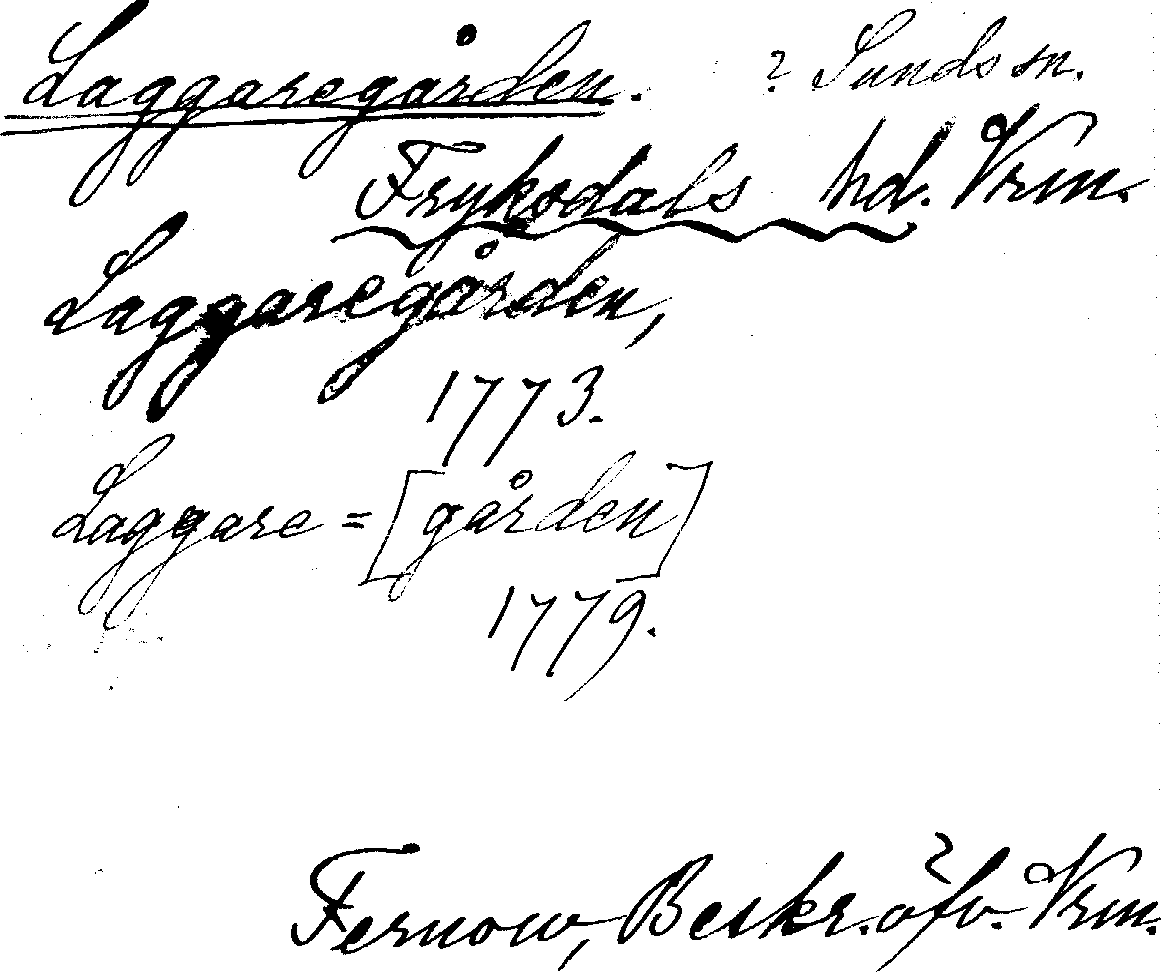 Laggaregården. ? Sunds sn.
Fryksdals hd. Vrm.
Laggaregården,
1773.
Laggare=[gården]
1779.
Fernow, Beskr. öfv. Vrm.